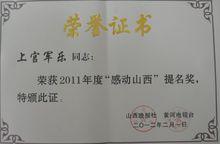 荣誉证书
上官军乐同志：
荣获2011年度“感动山西”提名奖，
特颁此证。
山西晚报社 黄河电视台
二〇一二年二月一日